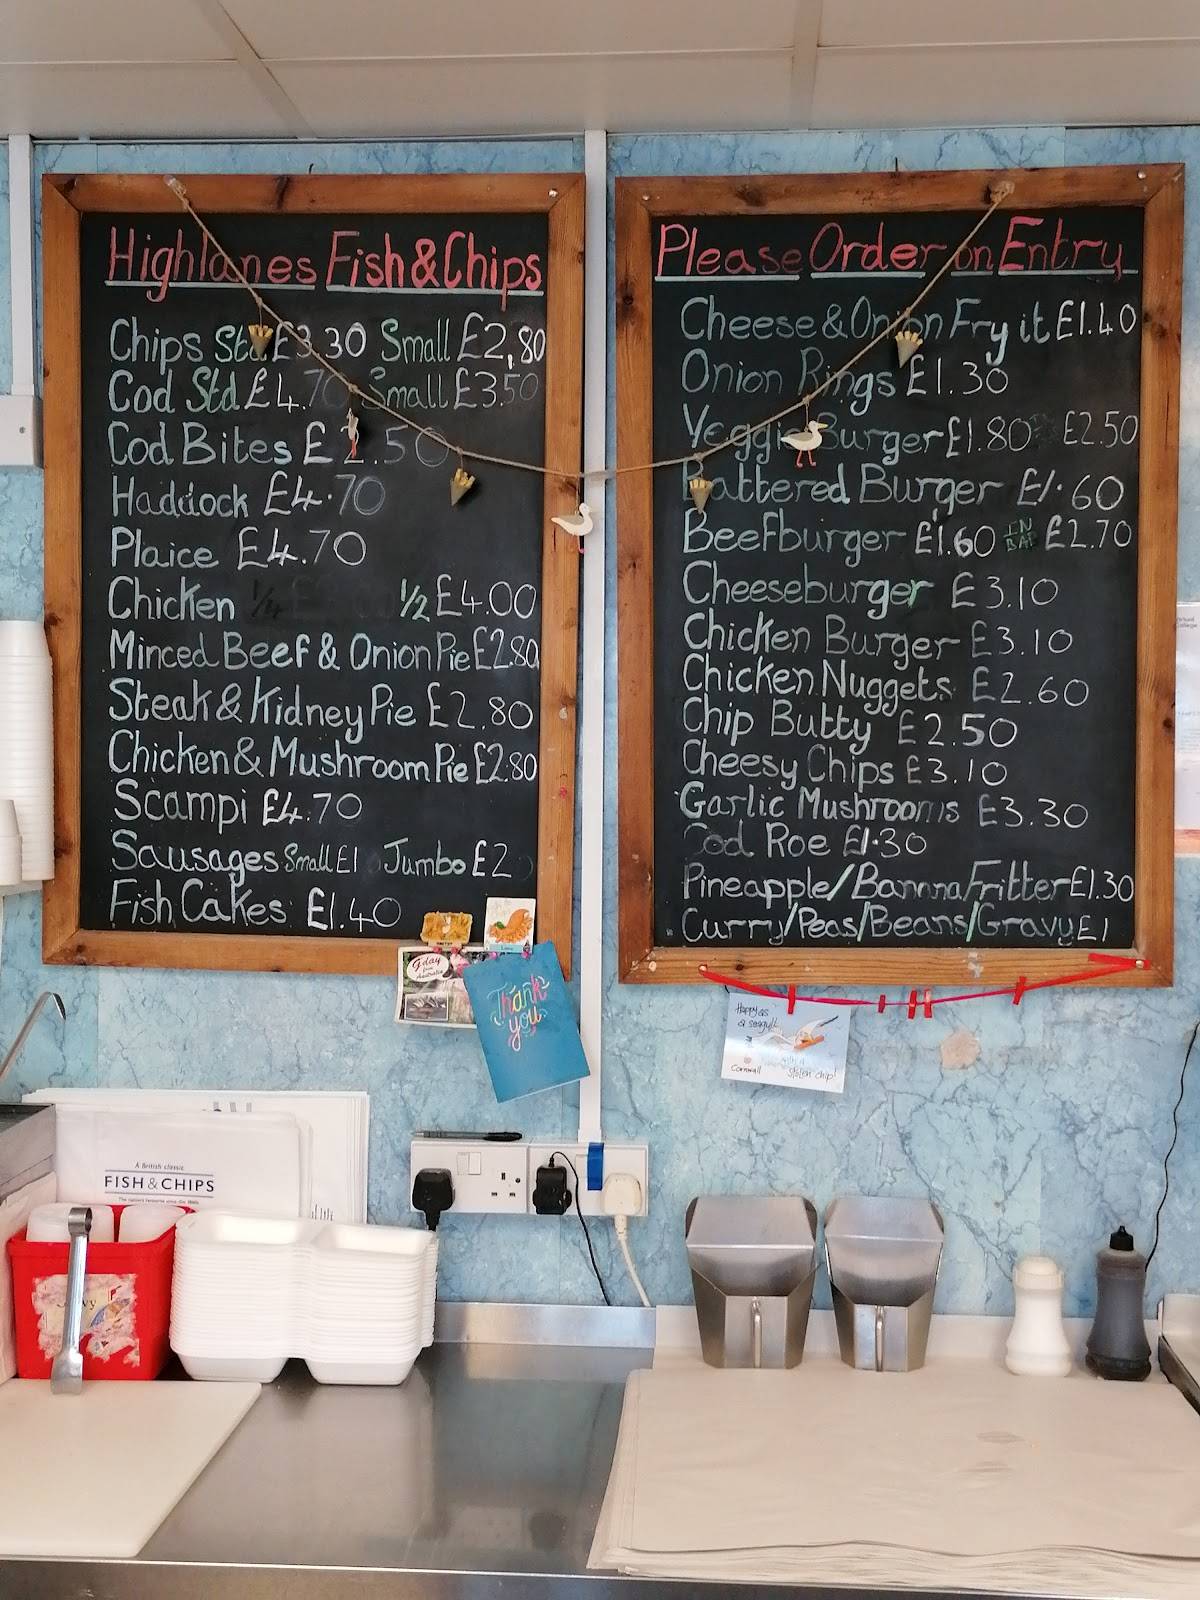 Highlanes Fish & Chips
Chips Std £3.30 Small £2.80
Cod Std £4.70 Small £3.50
Cod Bites £2.50
Haddock £4.70
Plaice £4.70
Chicken 1/4 1/2 £4.00
Minced Beef & Onion Pie £2.80
Steak & Kidney Pie £2.80
Chicken & Mushroom Pie £2.80
Scampi £4.70
Sausages Small £1 Jumbo £2
Fish Cakes £1.40
Please Order on Entry
Cheese & Onion Fry it £1.40
Onion Rings £1.30
Veggie Burger £1.80 £2.50
Battered Burger £1.60
Beefburger £1.60 IN BAP £2.70
Cheeseburger £3.10
Chicken Burger £3.10
Chicken Nuggets £2.60
Chip Butty £2.50
Cheesy Chips £3.10
Garlic Mushrooms £3.30
Cod Roe £1.30
Pineapple/Banana Fritter £1.30
Curry/Peas/Beans/Gravy £1
G'day
from
Australia
Thank
you
Happy as
a seagull
with a
Cornwall stolen chip!
A British classic
FISH & CHIPS